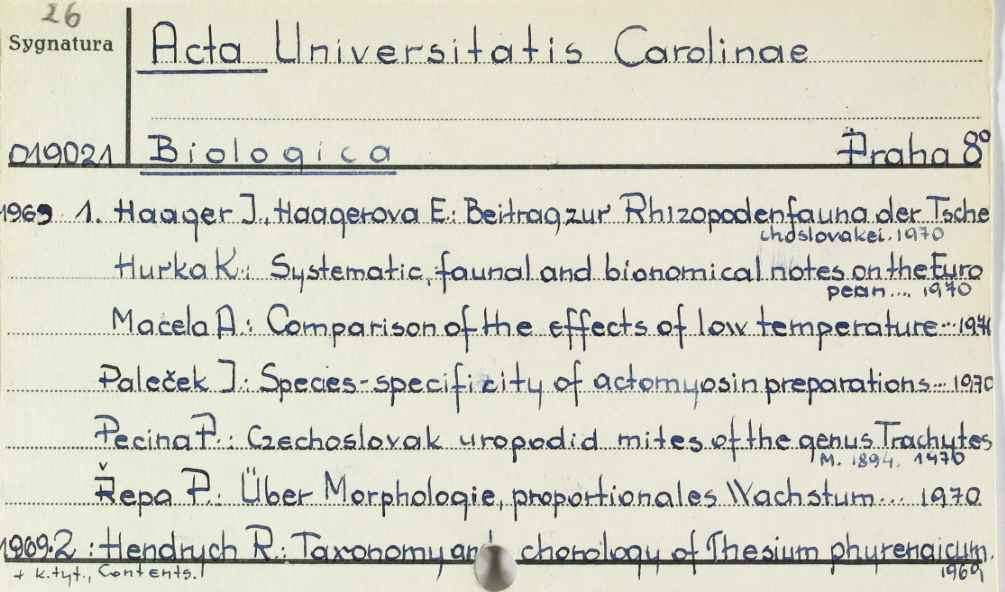 26
Sygnatura
Acta Universitatis Carolinae
019021 Biologica Praha 8°
1969 1. Haager J., Haagerova E.: Beitrag zur Rhizopodenfauna der Tsche
choslovakei. 1970
Hurka K.: Systematic, faunal and bionomical notes on the Euro
pean... 1970
Macela A.: Comparison of the effects of low temperature...
Paleček J.: Species-specificity of actomyosin preparations... 1970
Pecina P.: Czechoslovak uropodid mites of the genus Trachytes
M. 1894. 1970
Řepa P.: Über Morphologie, proportionales Wachstum... 1970
1969.2: Hendrych R.: Taxonomy and chorology of Thesium phyrenaicum.
1969
+ k.tyt., Contents.